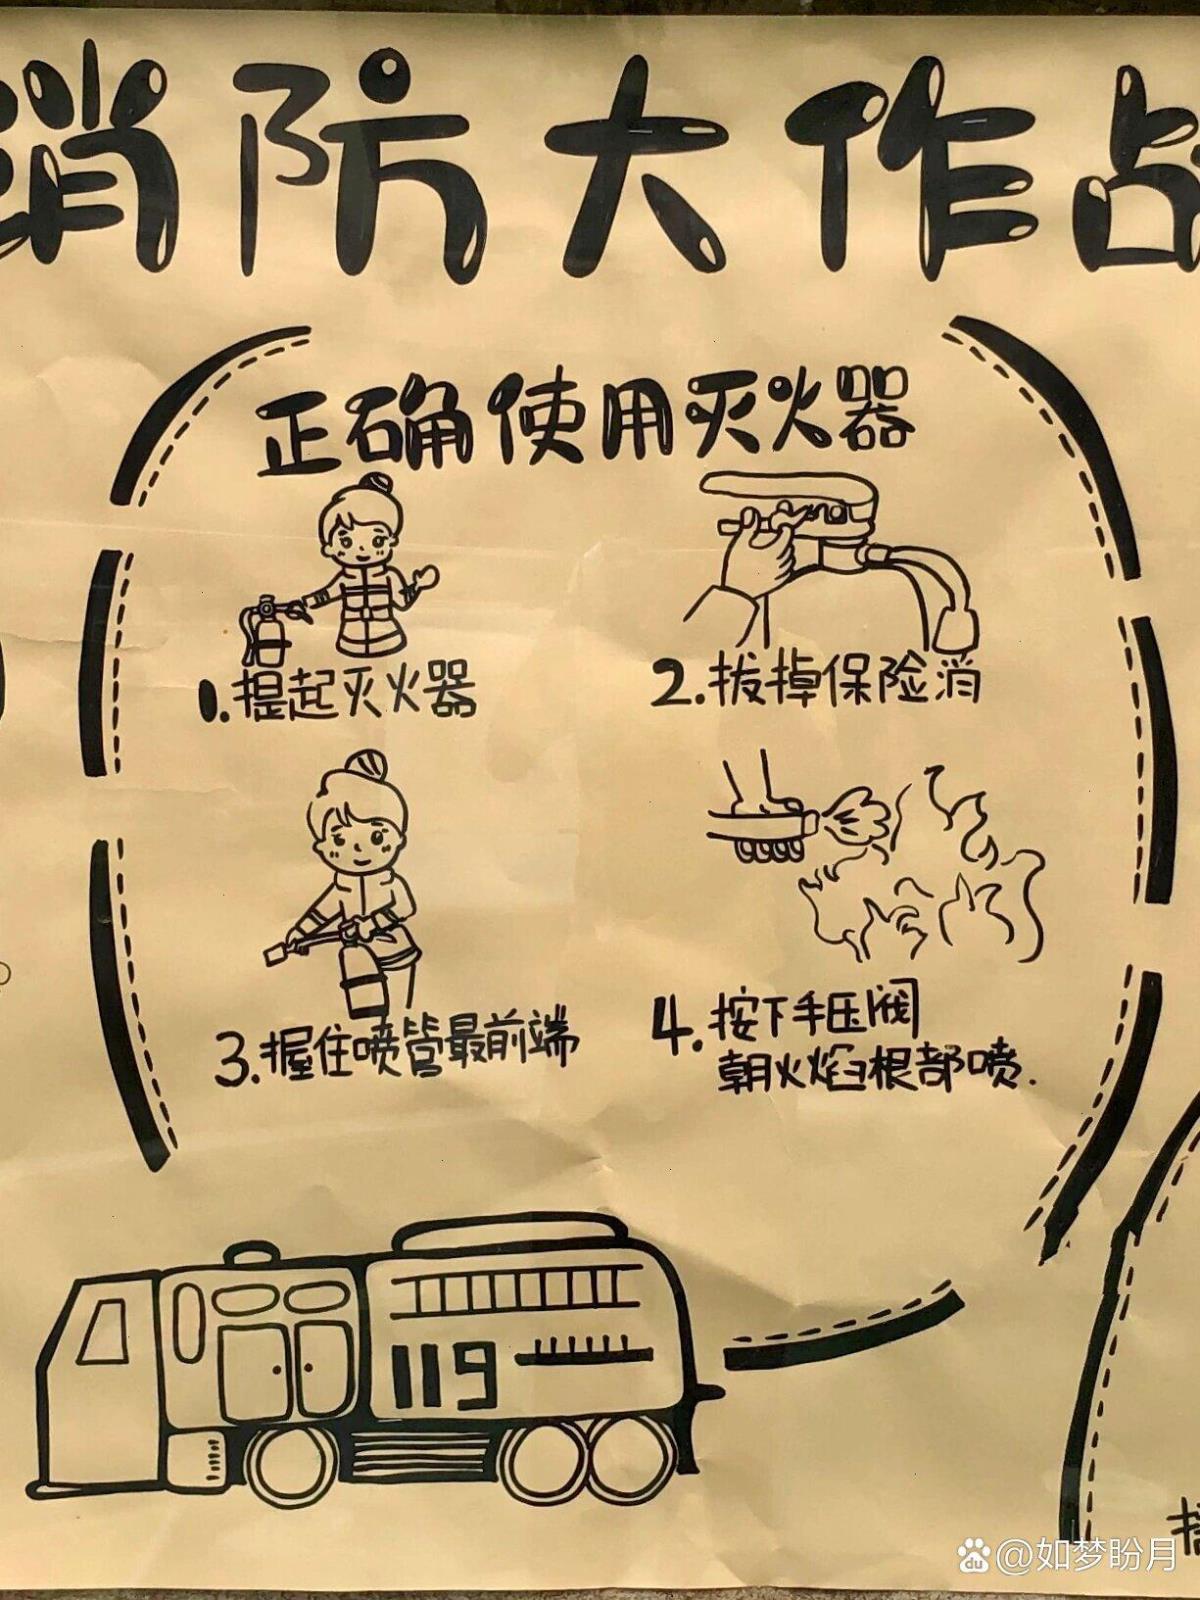 消防大作战
正确使用灭火器
1.提起灭火器
2.拔掉保险消
3.握住喷管最前端
4.按下手压阀
朝火焰根部喷.
119
@如梦盼月